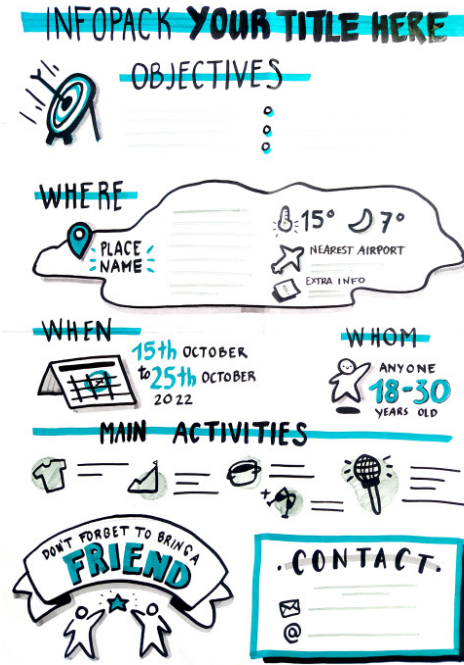 INFOPACK YOUR TITLE HERE
OBJECTIVES
WHERE
PLACE
NAME
15° 7°
NEAREST AIRPORT
EXTRA INFO
WHEN
15th OCTOBER
to 25th OCTOBER
2022
WHOM
ANYONE
18-30
YEARS OLD
MAIN ACTIVITIES
DON'T FORGET TO BRING A
FRIEND
.CONTACT.
@